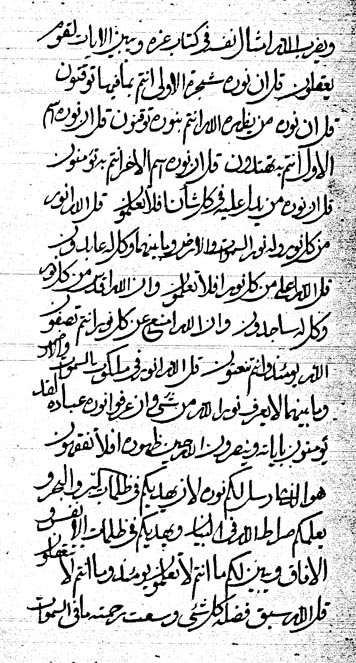 ويضرب الله امثال نفسه في كتاب عزه ويبين الايات لقوم
يعقلون قل ان نوره شجرة الاولى انتم بما فيها توقنون
قل ان نوره من يظهره الله انتم بنوره توقنون قل ان نوره اسم
الاول انتم به تهتدون قل ان نوره اسم الاخر انتم به تؤمنون
قل ان نوره من يدل عليه في كل شأن افلا تعلمون قل الله انور
من كل نور وله نور السموات والارض وما بينهما وكل له عابدون
قل الله اعلى من كل نور افلا تعلمون وان الله من كل نور
وكل له ساجدون وان الله امنع عن كل نور انتم تصفون
الله يومئذ وانتم قل الله انور في ملكوت السموات والارض
وما بينهما لا يعرف نور الله من شيء وان عرفوا نوره عباده الذين
يؤمنون باياته وينصرون الله حين ظهوره افلا تفقهون
هو الذي ارسل لكم نوره لان يهديكم في ظلمات البر والبحر و
يعلمكم صراط الله في البيان ويهديكم في ظلمات الانفس و
الافاق ويبين لكم ما انتم لا تعلمون يومئذ وما انتم لا
قل الله سبق فضله كل شيء وسعت رحمته ما في السموات